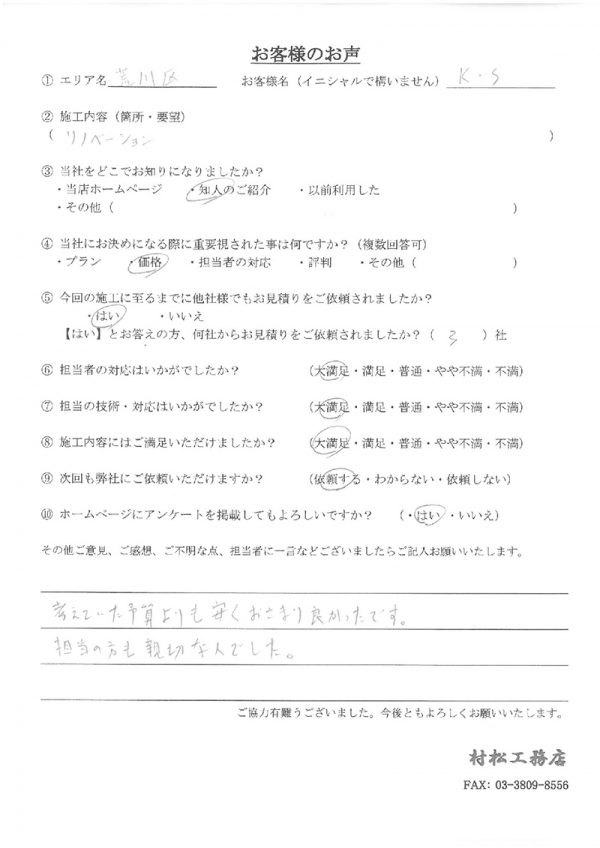 お客様のお声
① エリア名 荒川区 お客様名（イニシャルで構いません） K・S
② 施工内容（箇所・要望）
（ リノベーション ）
③ 当社をどこでお知りになりましたか？
・当店ホームページ ・知人のご紹介 ・以前利用した
・その他（ ）
④ 当社にお決めになる際に重要視された事は何ですか？（複数回答可）
・プラン ・価格 ・担当者の対応 ・評判 ・その他（ ）
⑤ 今回の施工に至るまでに他社様でもお見積りをご依頼されましたか？
・はい ・いいえ
【はい】とお答えの方、何社からお見積りをご依頼されましたか？（ 3 ）社
⑥ 担当者の対応はいかがでしたか？ （大満足・満足・普通・やや不満・不満）
⑦ 担当の技術・対応はいかがでしたか？ （大満足・満足・普通・やや不満・不満）
⑧ 施工内容にはご満足いただけましたか？ （大満足・満足・普通・やや不満・不満）
⑨ 次回も弊社にご依頼いただけますか？ （依頼する・わからない・依頼しない）
⑩ ホームページにアンケートを掲載してもよろしいですか？ （・はい ・いいえ）
その他ご意見、ご感想、ご不明な点、担当者に一言などございましたらご記入お願いいたします。
考えていた予算よりも安くおさまり良かったです。
担当の方も親切な人でした。
ご協力有難うございました。今後ともよろしくお願いいたします。
村松工務店
FAX: 03-3809-8556